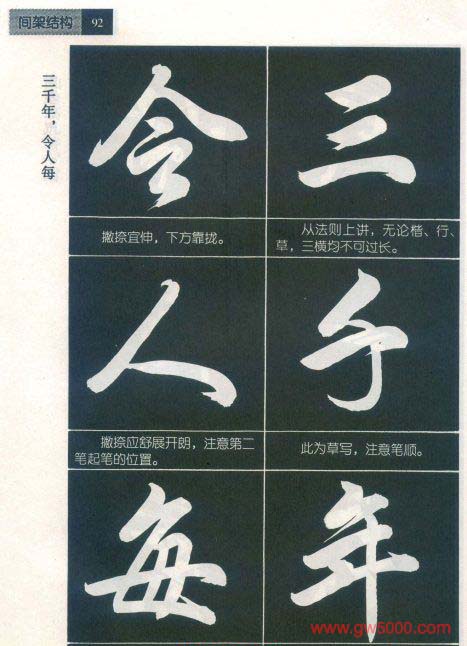 间架结构 92
三千年，令人每
三
从法则上讲，无论楷、行、
草，三横均不可过长。
千
此为草写，注意笔顺。
年
令
撇捺宜伸，下方靠拢。
人
撇捺应舒展开朗，注意第二
笔起笔的位置。
每
www.gw5000.com